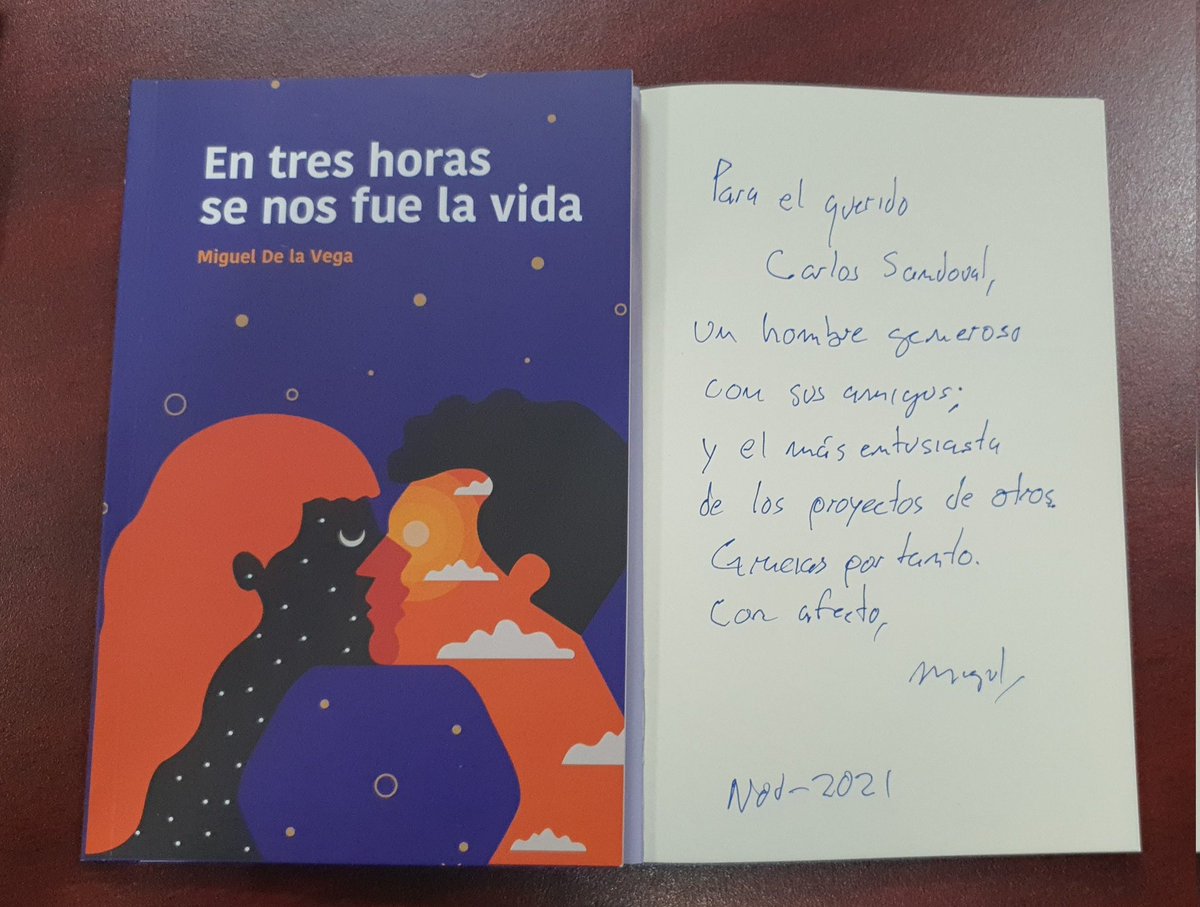 En tres horas
se nos fue la vida
Miguel De la Vega
Para el querido
Carlos Sandoval,
un hombre generoso
con sus amigos;
y el más entusiasta
de los proyectos de otros.
Gracias por tanto.
Con afecto,
Miguel,
Nov-2021